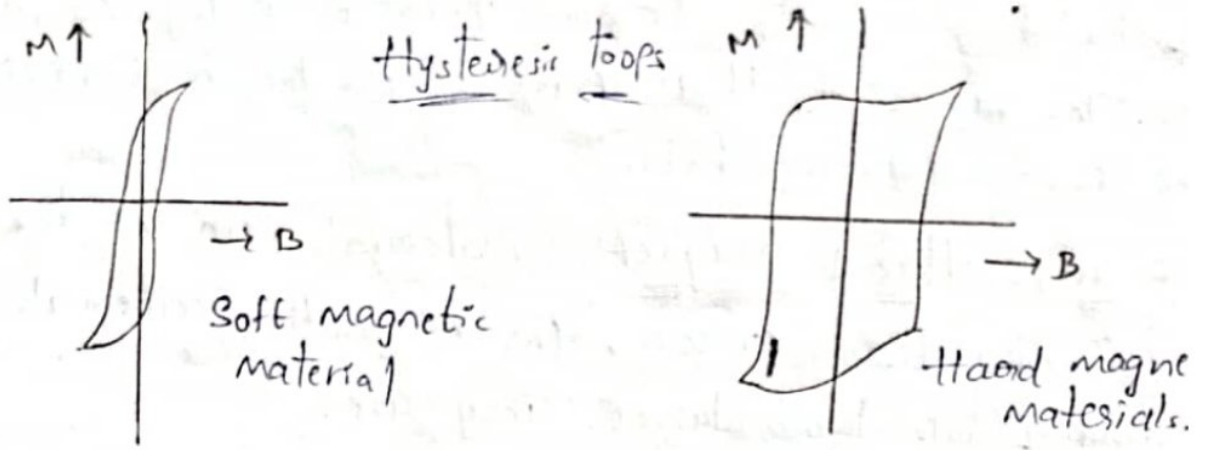 M ↑
Hysteresis loops
M ↑
→ B
Soft magnetic
material
→ B
Hard magne
materials.